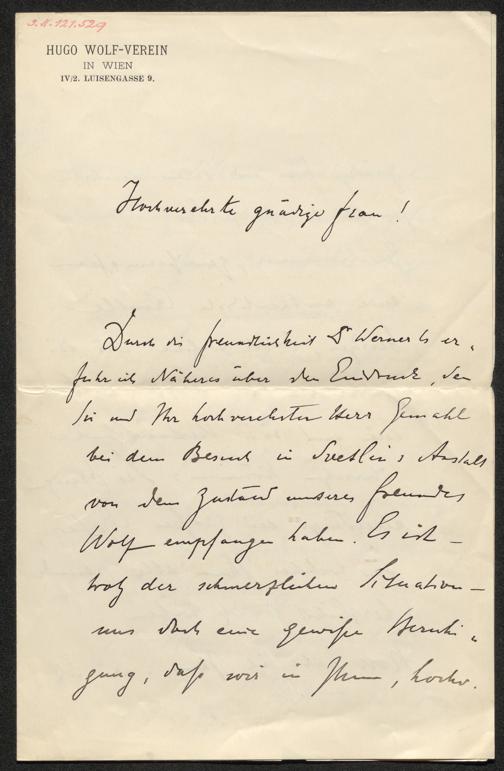 J.N. 121.529
HUGO WOLF-VEREIN
IN WIEN
IV/2. LUISENGASSE 9.
Hochverehrte gnädige Frau!
Durch die Freundlichkeit Dr Werners er-
fuhr ich Näheres über den Eindruck, den
Sie und Ihr hochverehrter Herr Gemahl
bei dem Besuch in Svetlins Anstalt
von dem Zustand unseres Freundes
Wolf empfangen haben. Es ist –
trotz der schmerzlichen Situation –
uns doch eine gewiße Beruhi-
gung, daß wir in Ihnen, hochv.